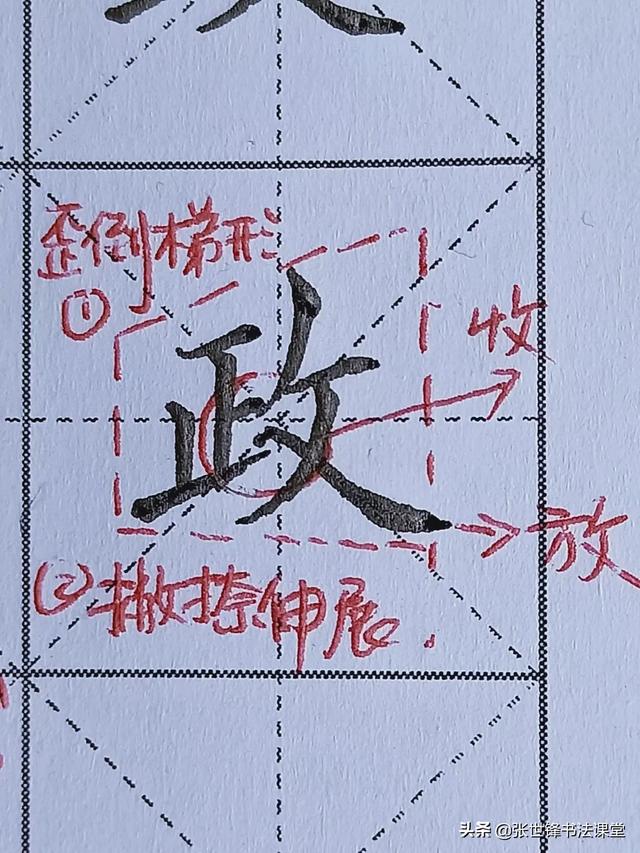 歪倒梯形
①
收
政
放
②撇捺伸展.
头条 @张世锋书法课堂